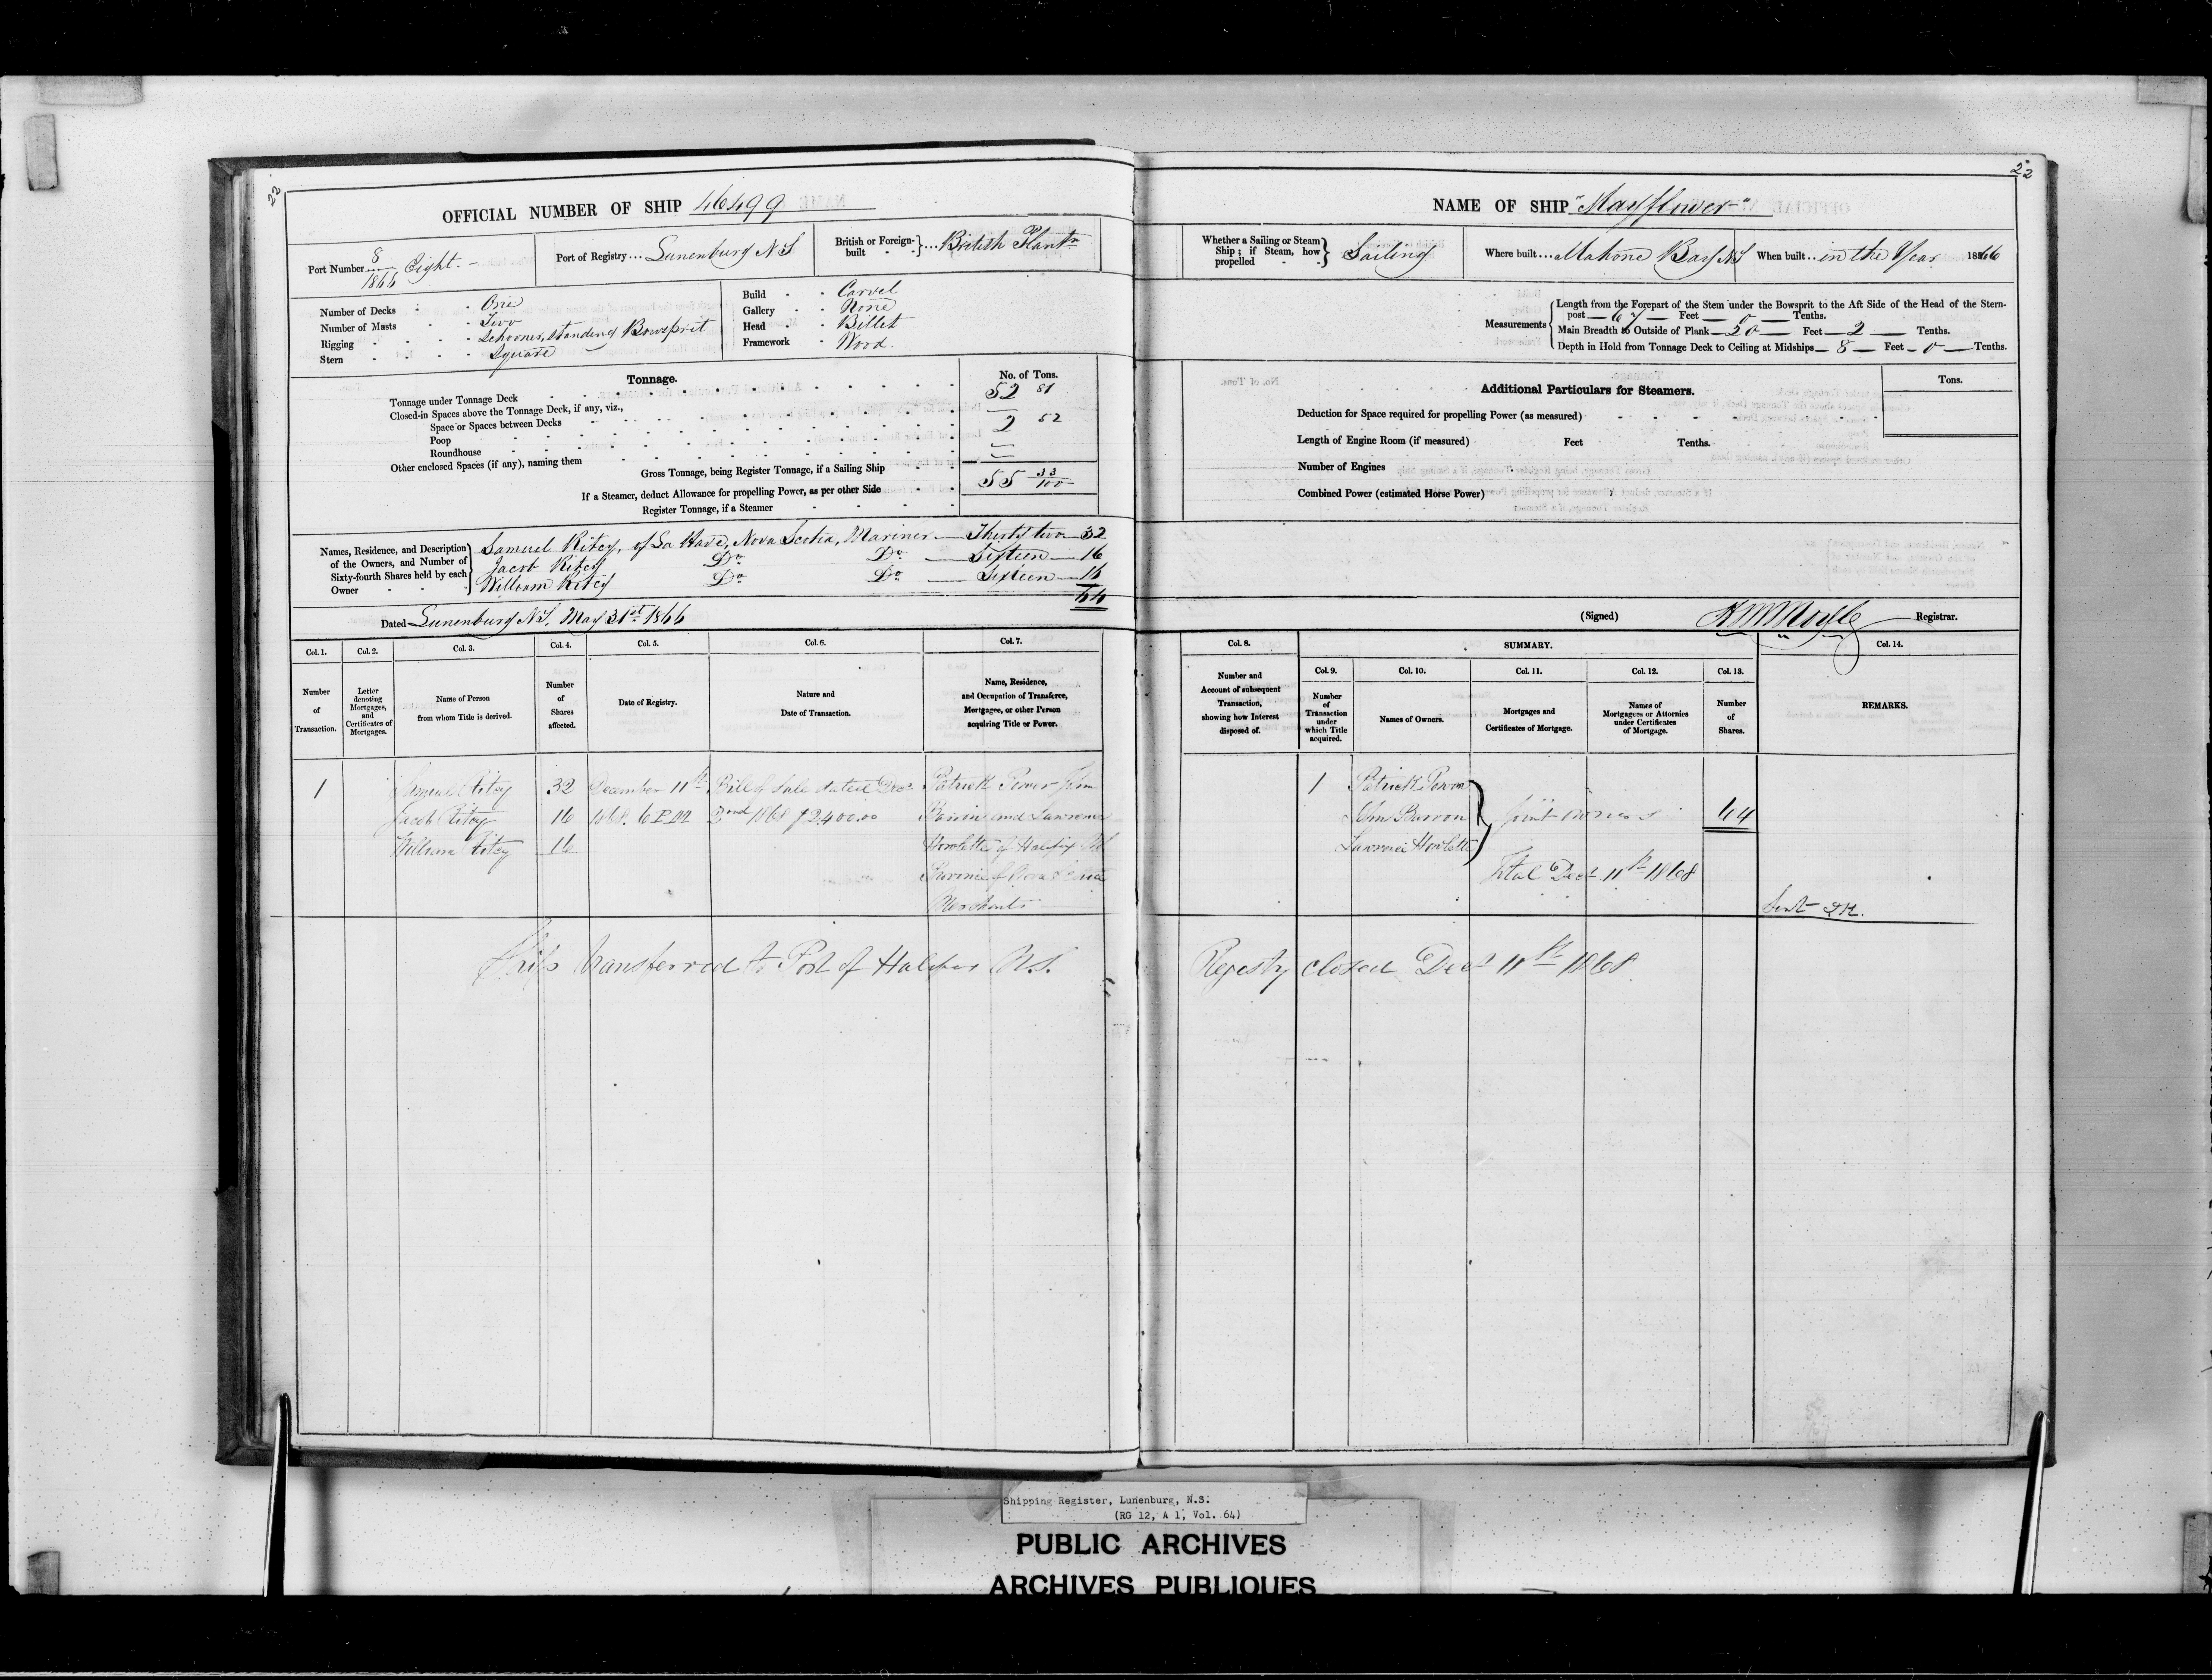 22
OFFICIAL NUMBER OF SHIP 46499
Port Number 8/1866 Eight.
Port of Registry Lunenburg N S
British or Foreign-built British Plantn
Number of Decks One
Number of Masts Two
Rigging Schooner, standing Bowsprit
Stern Square
Build Carvel
Gallery None
Head Billet
Framework Wood
Tonnage. No. of Tons.
Tonnage under Tonnage Deck 52 81
Closed-in Spaces above the Tonnage Deck, if any, viz.,
Space or Spaces between Decks
Poop 2 52
Roundhouse
Other enclosed Spaces (if any), naming them
Gross Tonnage, being Register Tonnage, if a Sailing Ship 55 33/100
If a Steamer, deduct Allowance for propelling Power, as per other Side
Register Tonnage, if a Steamer
Names, Residence, and Description of the Owners, and Number of Sixty-fourth Shares held by each Owner
Samuel Ritcy, of La Have, Nova Scotia, Mariner — Thirty two — 32
Jacob Ritcy Do Do — Sixteen — 16
William Ritcy Do Do — Sixteen — 16
64
Dated Lunenburg N.S. May 31st 1866
Col. 1. Col. 2. Col. 3. Col. 4. Col. 5. Col. 6. Col. 7.
Number of Transaction.
Letter denoting Mortgages, and Certificates of Mortgages.
Name of Person from whom Title is derived.
Number of Shares affected.
Date of Registry.
Nature and Date of Transaction.
Name, Residence, and Occupation of Transferee, Mortgagee, or other Person acquiring Title or Power.
1 Samuel Ritcy 32 December 11th Bill of Sale dated Decr Patrick Power
Jacob Ritcy 16 1868. 6 P.M. 2nd 1868 $2400.00 and Lawrence
William Ritcy 16 Howlette of Halifax
Province of Nova Scotia
Merchants
Ship transferred to Port of Halifax N.S.
22
NAME OF SHIP "Mayflower"
Whether a Sailing or Steam Ship; if Steam, how propelled Sailing
Where built Mahone Bay NS
When built in the Year 1866
Measurements
Length from the Forepart of the Stem under the Bowsprit to the Aft Side of the Head of the Stern-
post — 67 — Feet — 0 — Tenths.
Main Breadth to Outside of Plank — 20 — Feet — 2 — Tenths.
Depth in Hold from Tonnage Deck to Ceiling at Midships — 8 — Feet — 0 — Tenths.
Additional Particulars for Steamers. Tons.
Deduction for Space required for propelling Power (as measured)
Length of Engine Room (if measured) Feet Tenths.
Number of Engines
Combined Power (estimated Horse Power)
(Signed) Registrar.
Col. 8. SUMMARY. Col. 14.
Col. 9. Col. 10. Col. 11. Col. 12. Col. 13.
Number and Account of subsequent Transaction, showing how Interest disposed of.
Number of Transaction under which Title acquired.
Names of Owners.
Mortgages and Certificates of Mortgage.
Names of Mortgagees or Attornies under Certificates of Mortgage.
Number of Shares.
REMARKS.
1 Patrick Power
Barron Joint owners 64
Lawrence Howlette
Total Decr 11th 1868
Sent
Registry closed Decr 11th 1868
Shipping Register, Lunenburg, N.S.
(RG 12, A 1, Vol. 64)
PUBLIC ARCHIVES
ARCHIVES PUBLIQUES